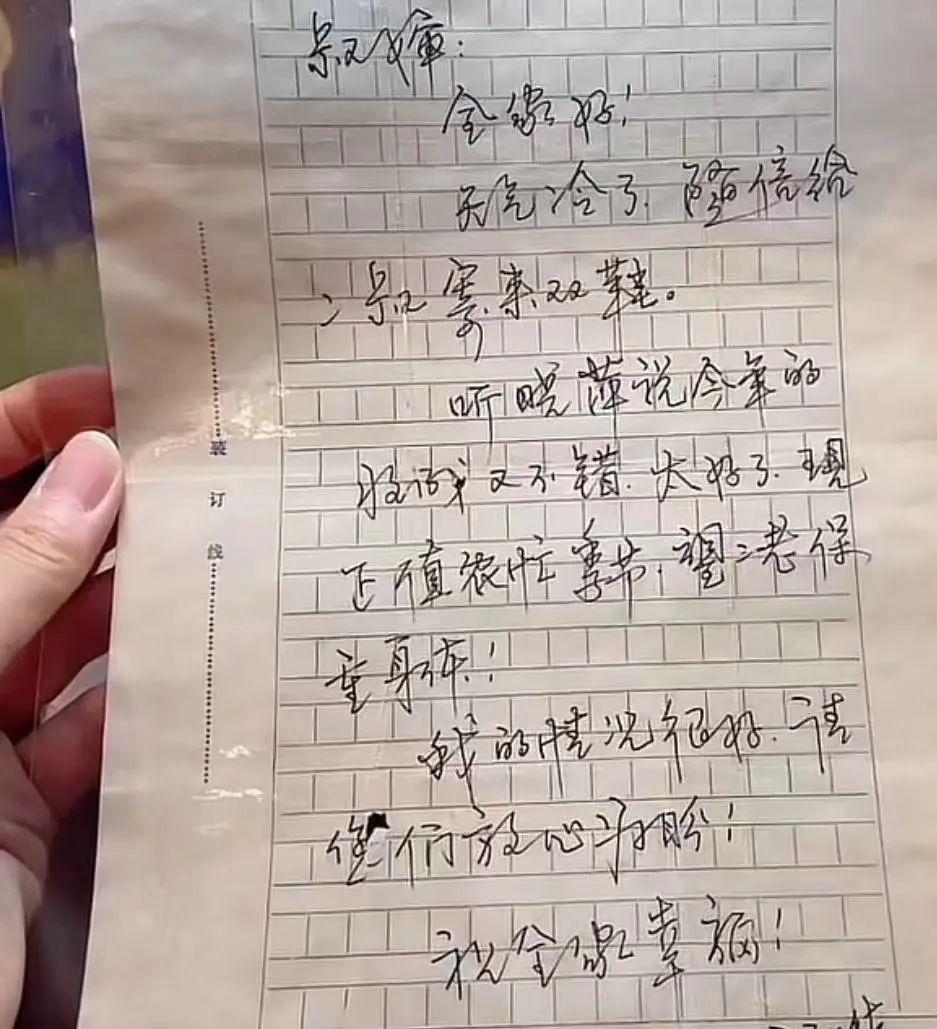 叔婶:
全家好!
天气冷了.随信给
二叔寄来双鞋。
听晓萍说今年的
收成又不错.太好了.现
正值农忙季节,望二老保
重身体!
我的情况很好.请
您们放心勿盼!
祝全家幸福!
装订线